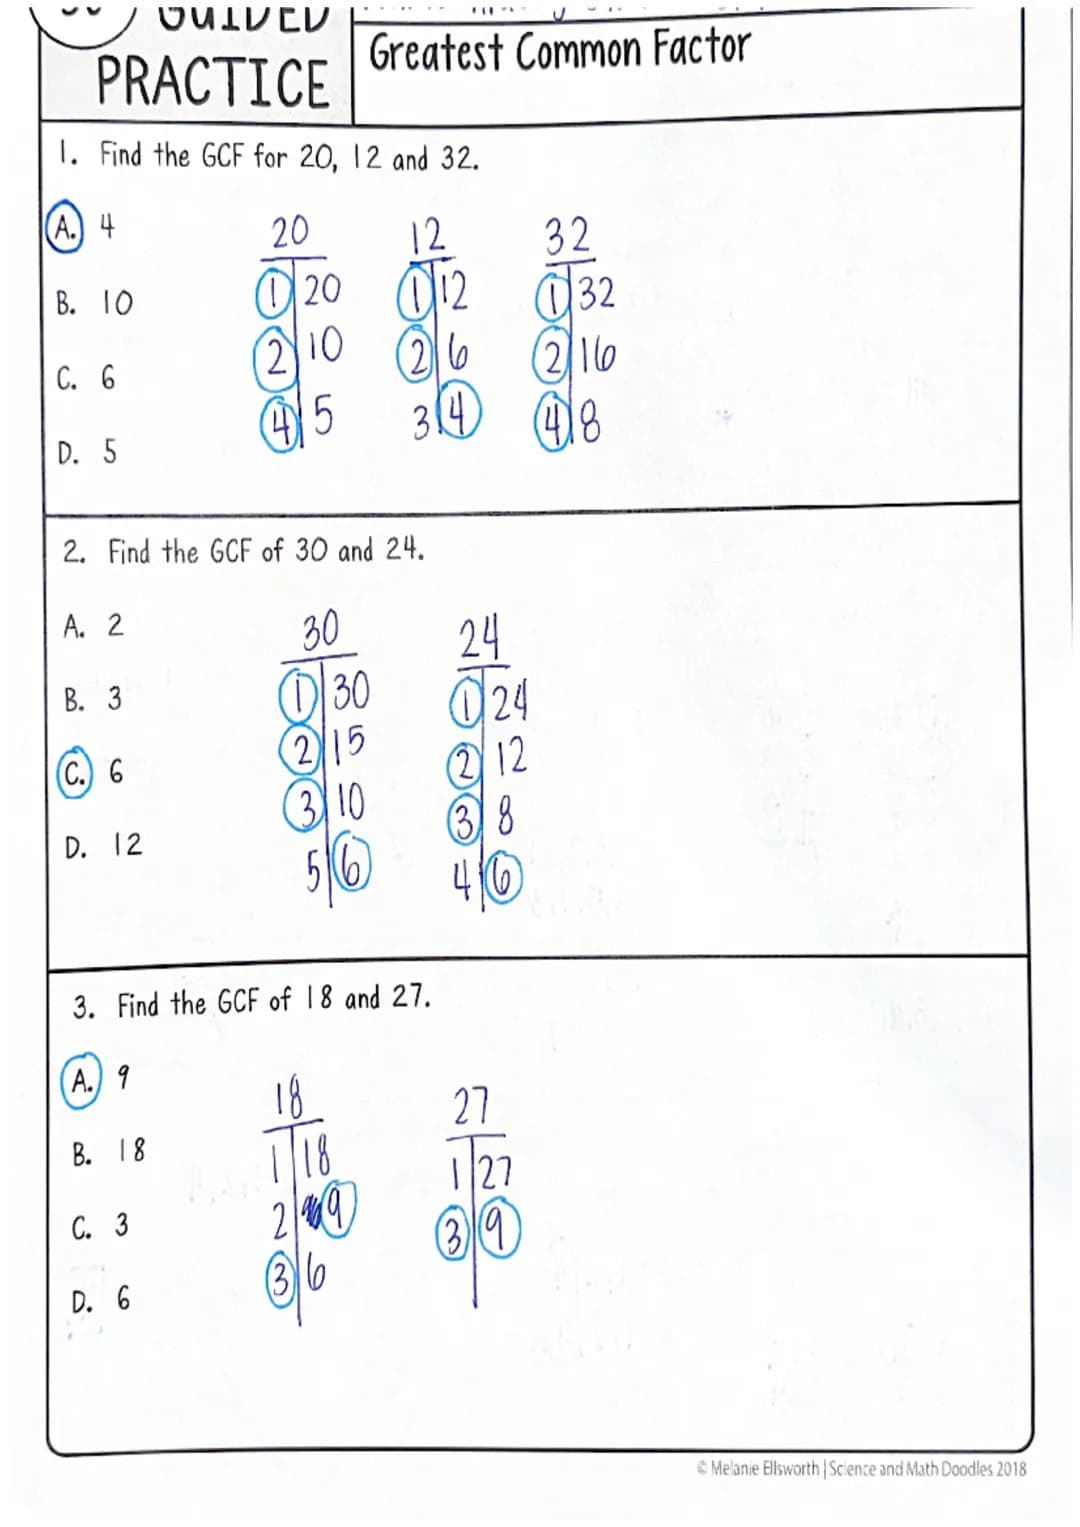 GUIDED
PRACTICE
Greatest Common Factor
1. Find the GCF for 20, 12 and 32.
A. 4
B. 10
C. 6
D. 5
20 12 32
1 20 1 12 1 32
2 10 2 6 2 16
4 5 3 4 4 8
2. Find the GCF of 30 and 24.
A. 2
B. 3
C. 6
D. 12
30 24
1 30 1 24
2 15 2 12
3 10 3 8
5 6 4 6
3. Find the GCF of 18 and 27.
A. 9
B. 18
C. 3
D. 6
18 27
1 18 1 27
2 9 3 9
3 6
© Melanie Ellsworth | Science and Math Doodles 2018